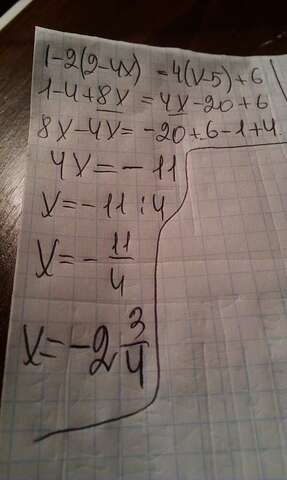 1-2(2-4x) = 4(x-5)+6
1-4+8x = 4x-20+6
8x-4x= -20+6-1+4
4x=-11
x=-11:4
x=-11/4
x=-2 3/4